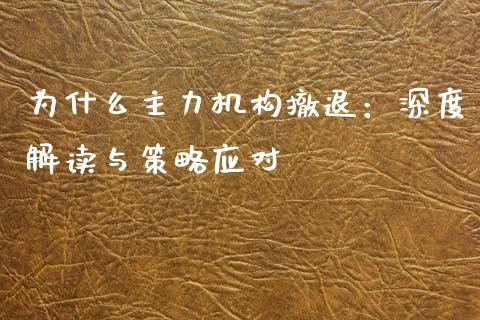 为什么主力机构撤退：深度
解读与策略应对